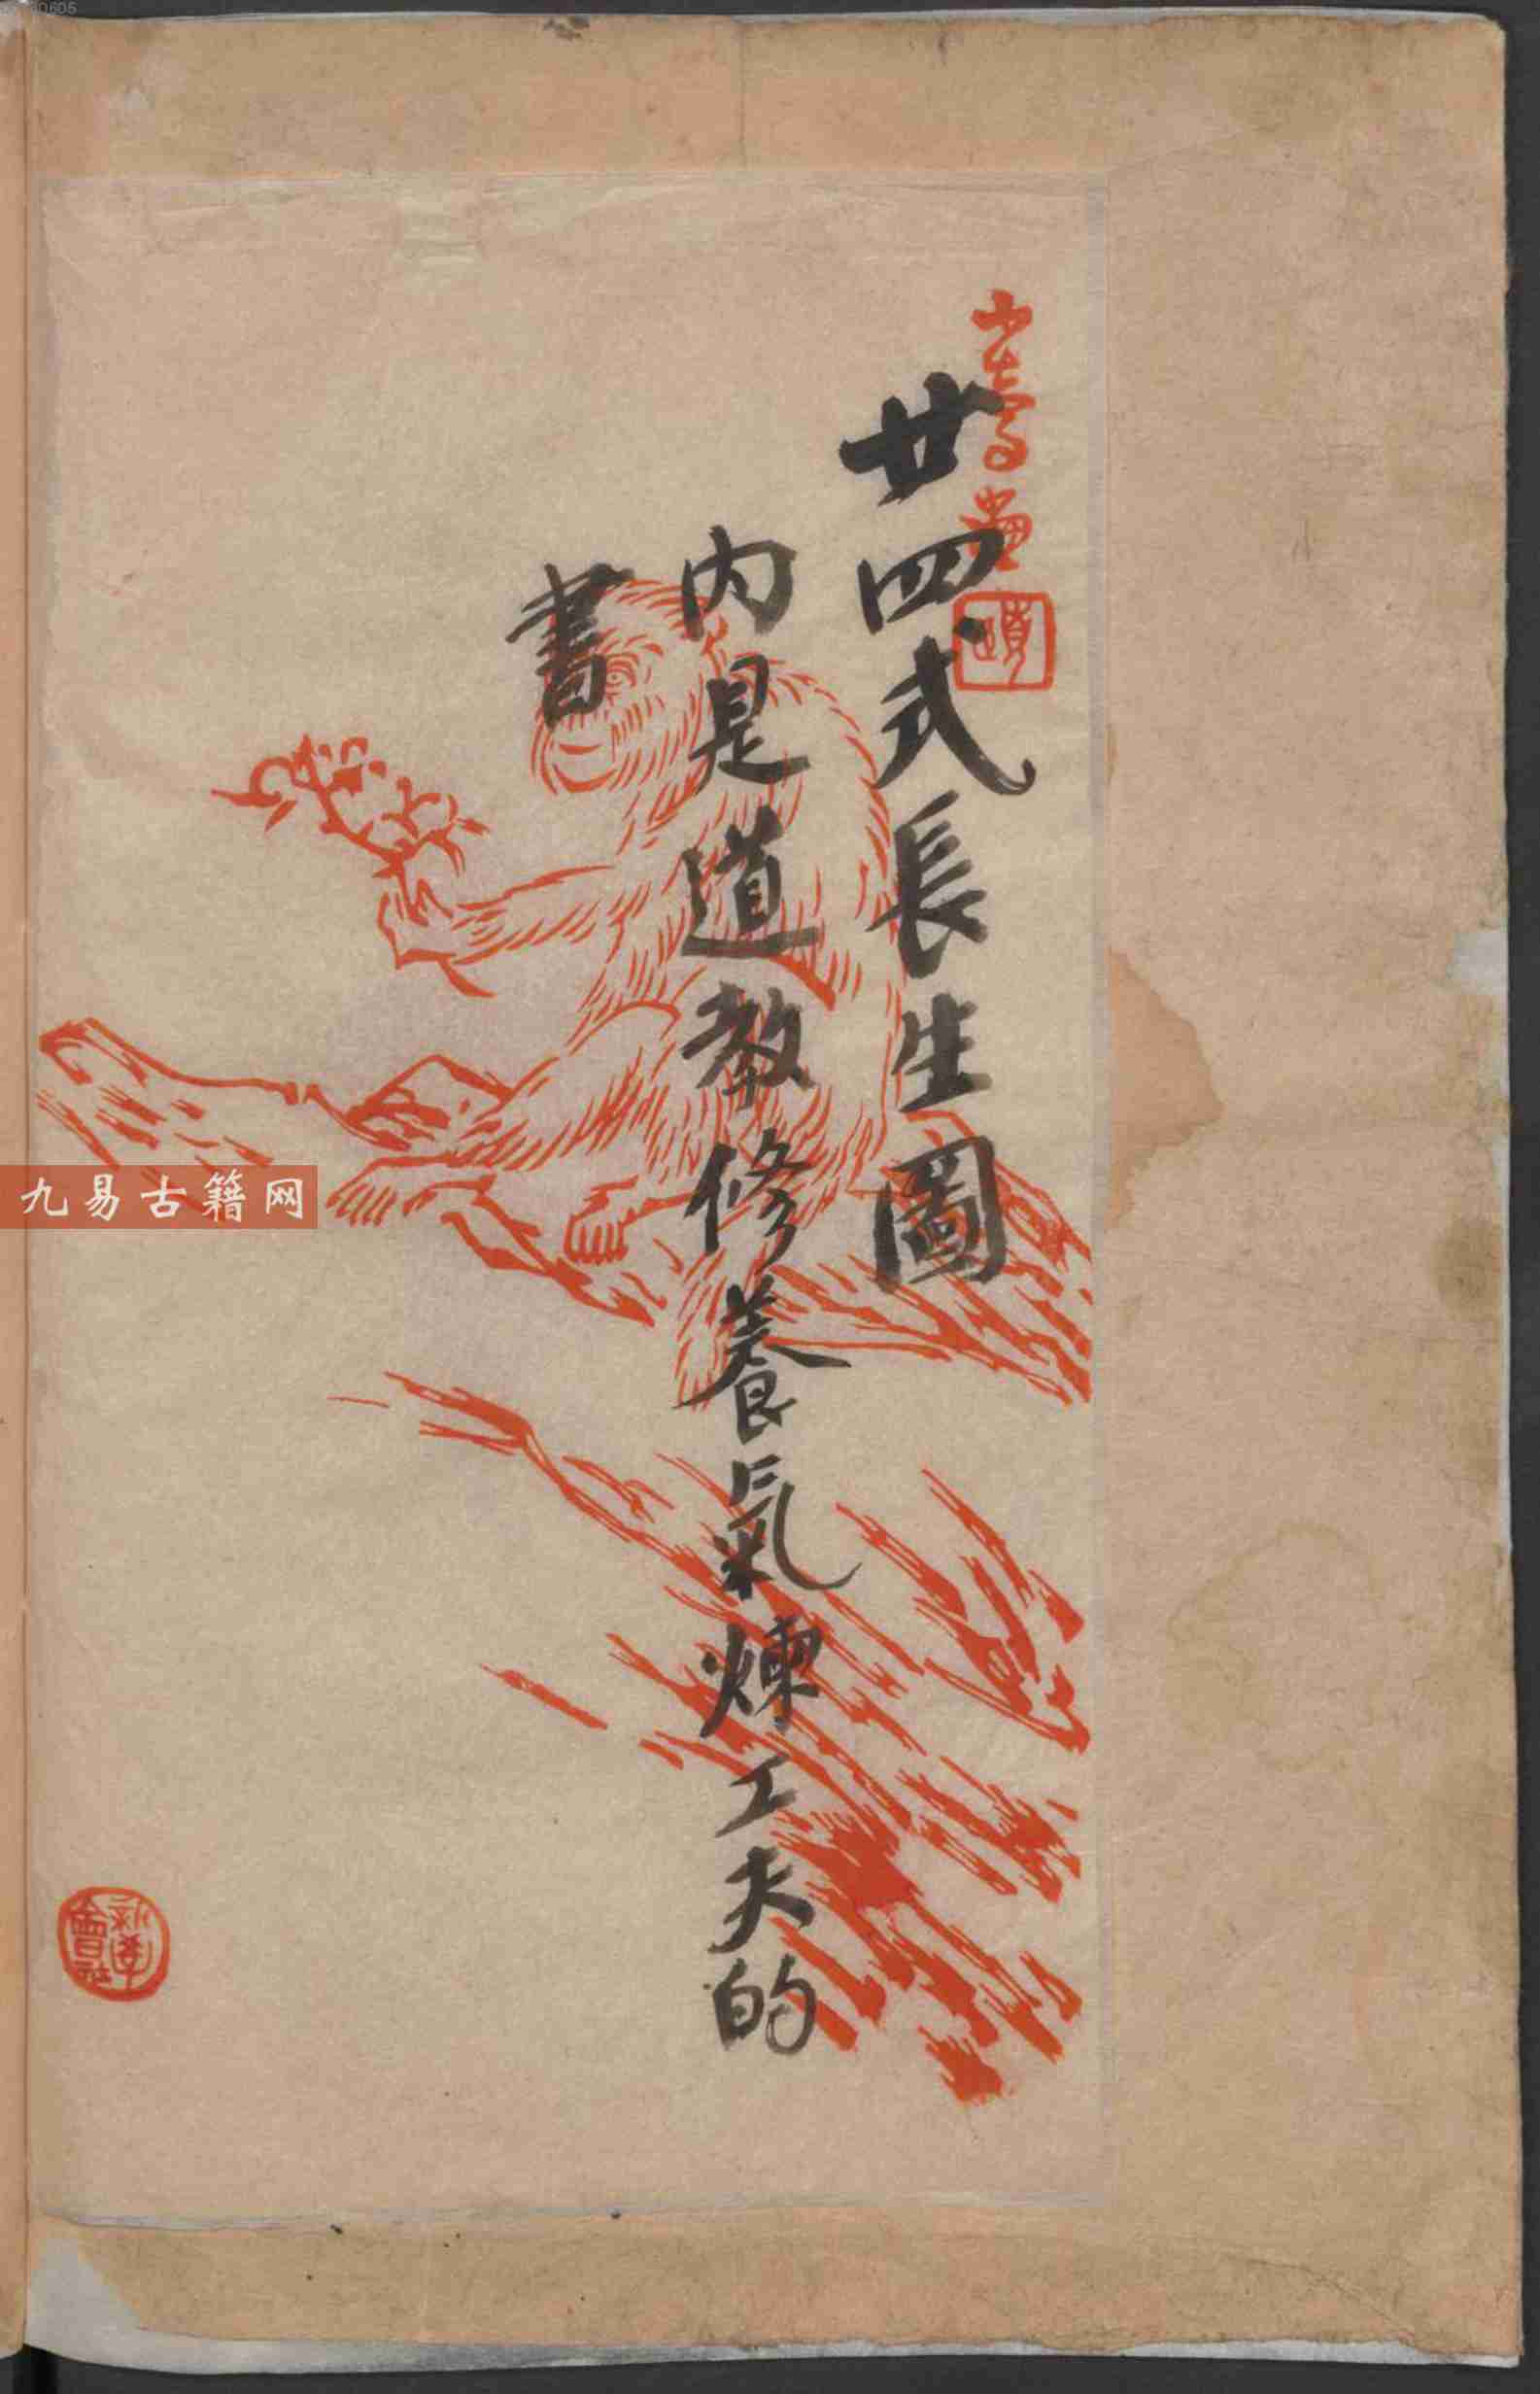 廿四式長生圖
內是道教修養氣煉工夫的
書
九易古籍网